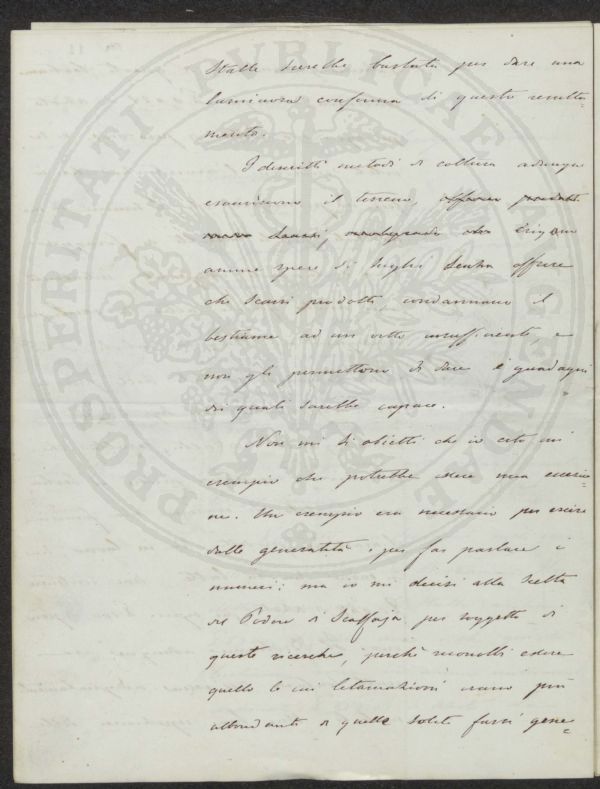 Stalle sarebbe bastata per dare una
luminosa conferma di questo resulta-
mento.
I descritti metodi di coltura adunque
esauriscono il terreno, offrono prodotti
scarsi, esigono
spese di senza offrire
che scarsi prodotti, condannano il
bestiame ad un vitto insufficiente, e
non gli permettono di dare i guadagni
di quali sarebbe capace.
Non mi si obietti che io cito un
esempio che potrebbe essere una eccezio-
ne. Un esempio era necessario per escire
dalle generalità e per far parlare i
numeri: ma io mi decisi alla scelta
del Podere di Scaffaja per soggetto di
queste ricerche, perchè essere
quello le cui letamazioni erano più
abbondanti di quelle solite farsi gene-
PROSPERITATI PUBLICAE AUGENDAE